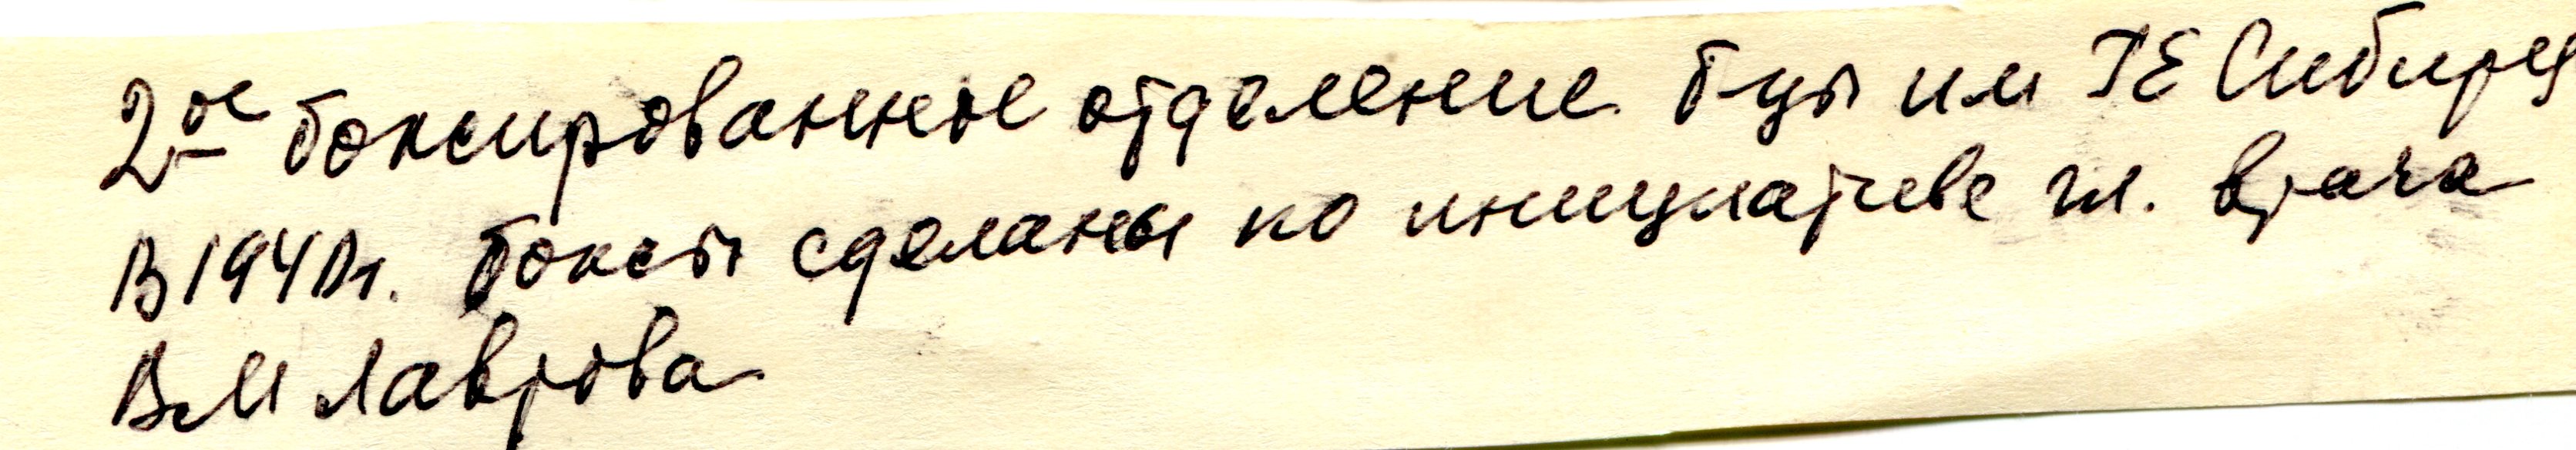 2ое боксированное отделение б-цы им ГЕ Сибирц
В 1940г. боксы сделаны по инициативе гл. врача
ВМ Лаврова